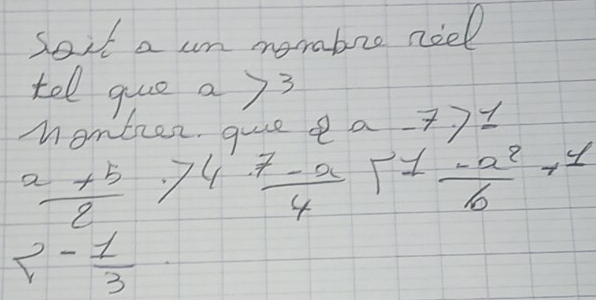 Soit a un nombre réel
tel que a > 3
Montrer que 2 a - 7 > 1
a + 5 / 2 > 4 7 - a / 4 < 1 - a² / 6 + 1
< - 1 / 3